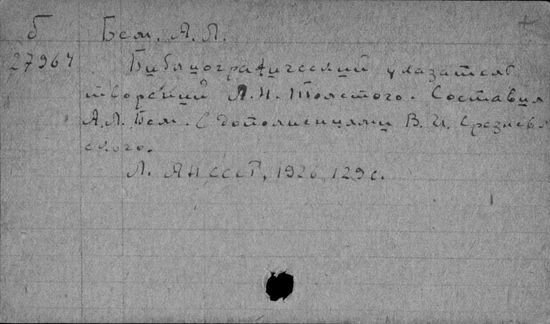 б Бем, А. Л.
27964 Библиографический указатель
творений Л. Н. Толстого. Составил
А. Л. Бем. С дополнениями В. И. Срезнев-
ского.
Л. АН СССР, 1926, 129 с.